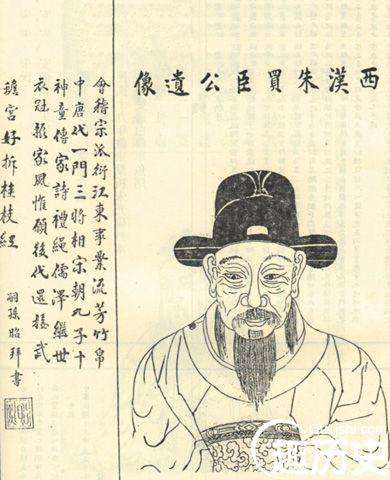 西漢朱買臣公遺像
會稽宗派衍江東事業流芳竹帛
中唐代一門三將相宋朝九子十
神童傳家詩禮繩儒澤繼世
衣冠家風惟願後代還接武
蟾宮好折桂枝紅
嗣孫昭拜書
趣历史